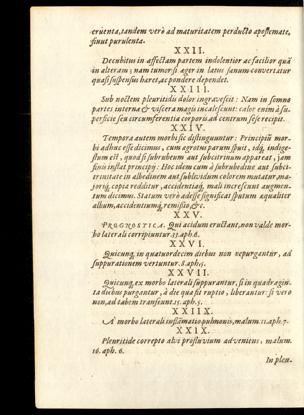 eruenta, tandem verò ad maturitatem perducto apostemate,
fiunt purulenta.
XXII.
Decubitus in affectam partem indolentior ac facilior quã
in alteram; nam tumor si æger in latus sanum convertatur
quasi suspensus hæret, ac pondere dependet.
XXIII.
Sub noctem pleuritidis dolor ingravescit: Nam in somno
partes internæ & viscera magis incalescunt: calor enim à su-
perficie seu circumferentia corporis ad centrum sese recipit.
XXIV.
Tempora autem morbi sic distinguuntur: Principiũ mor-
bi adhuc esse dicimus, cum ægrotus parum spuit, idq; indige-
stum est, quod si subrubeum aut subcitrinum appareat, jam
finis instat principij: Hoc idem cum à subrubedine aut subci-
trinitate in albedinem aut sublividum colorem mutatur, ma-
joriq; copia redditur, accidentiaq; mali increscunt augmen-
tum dicimus. Statum verò adesse significat sputum æqualiter
album, accidentiumq; remissio, &c.
XXV.
PROGNOSTICA. Qui acidum eructant, non valde mor-
bo laterali corripiuntur. 33. aph. 6.
XXVI.
Quicunq; in quatuordecim diebus non repurgantur, ad
suppurationem vertuntur. 8. aph. 5.
XXVII.
Quicunq; ex morbo laterali suppurantur, si in quadragin-
ta diebus purgantur, à die qua fit ruptio, liberantur: si vero
non, ad tabem transeunt. 15. aph. 5.
XXIIX.
A morbo laterali inflãmatio pulmonis, malum. 11. aph. 7.
XXIX.
Pleuritide correpto alvi profluvium adveniens, malum.
16. aph. 6.
In pleu-